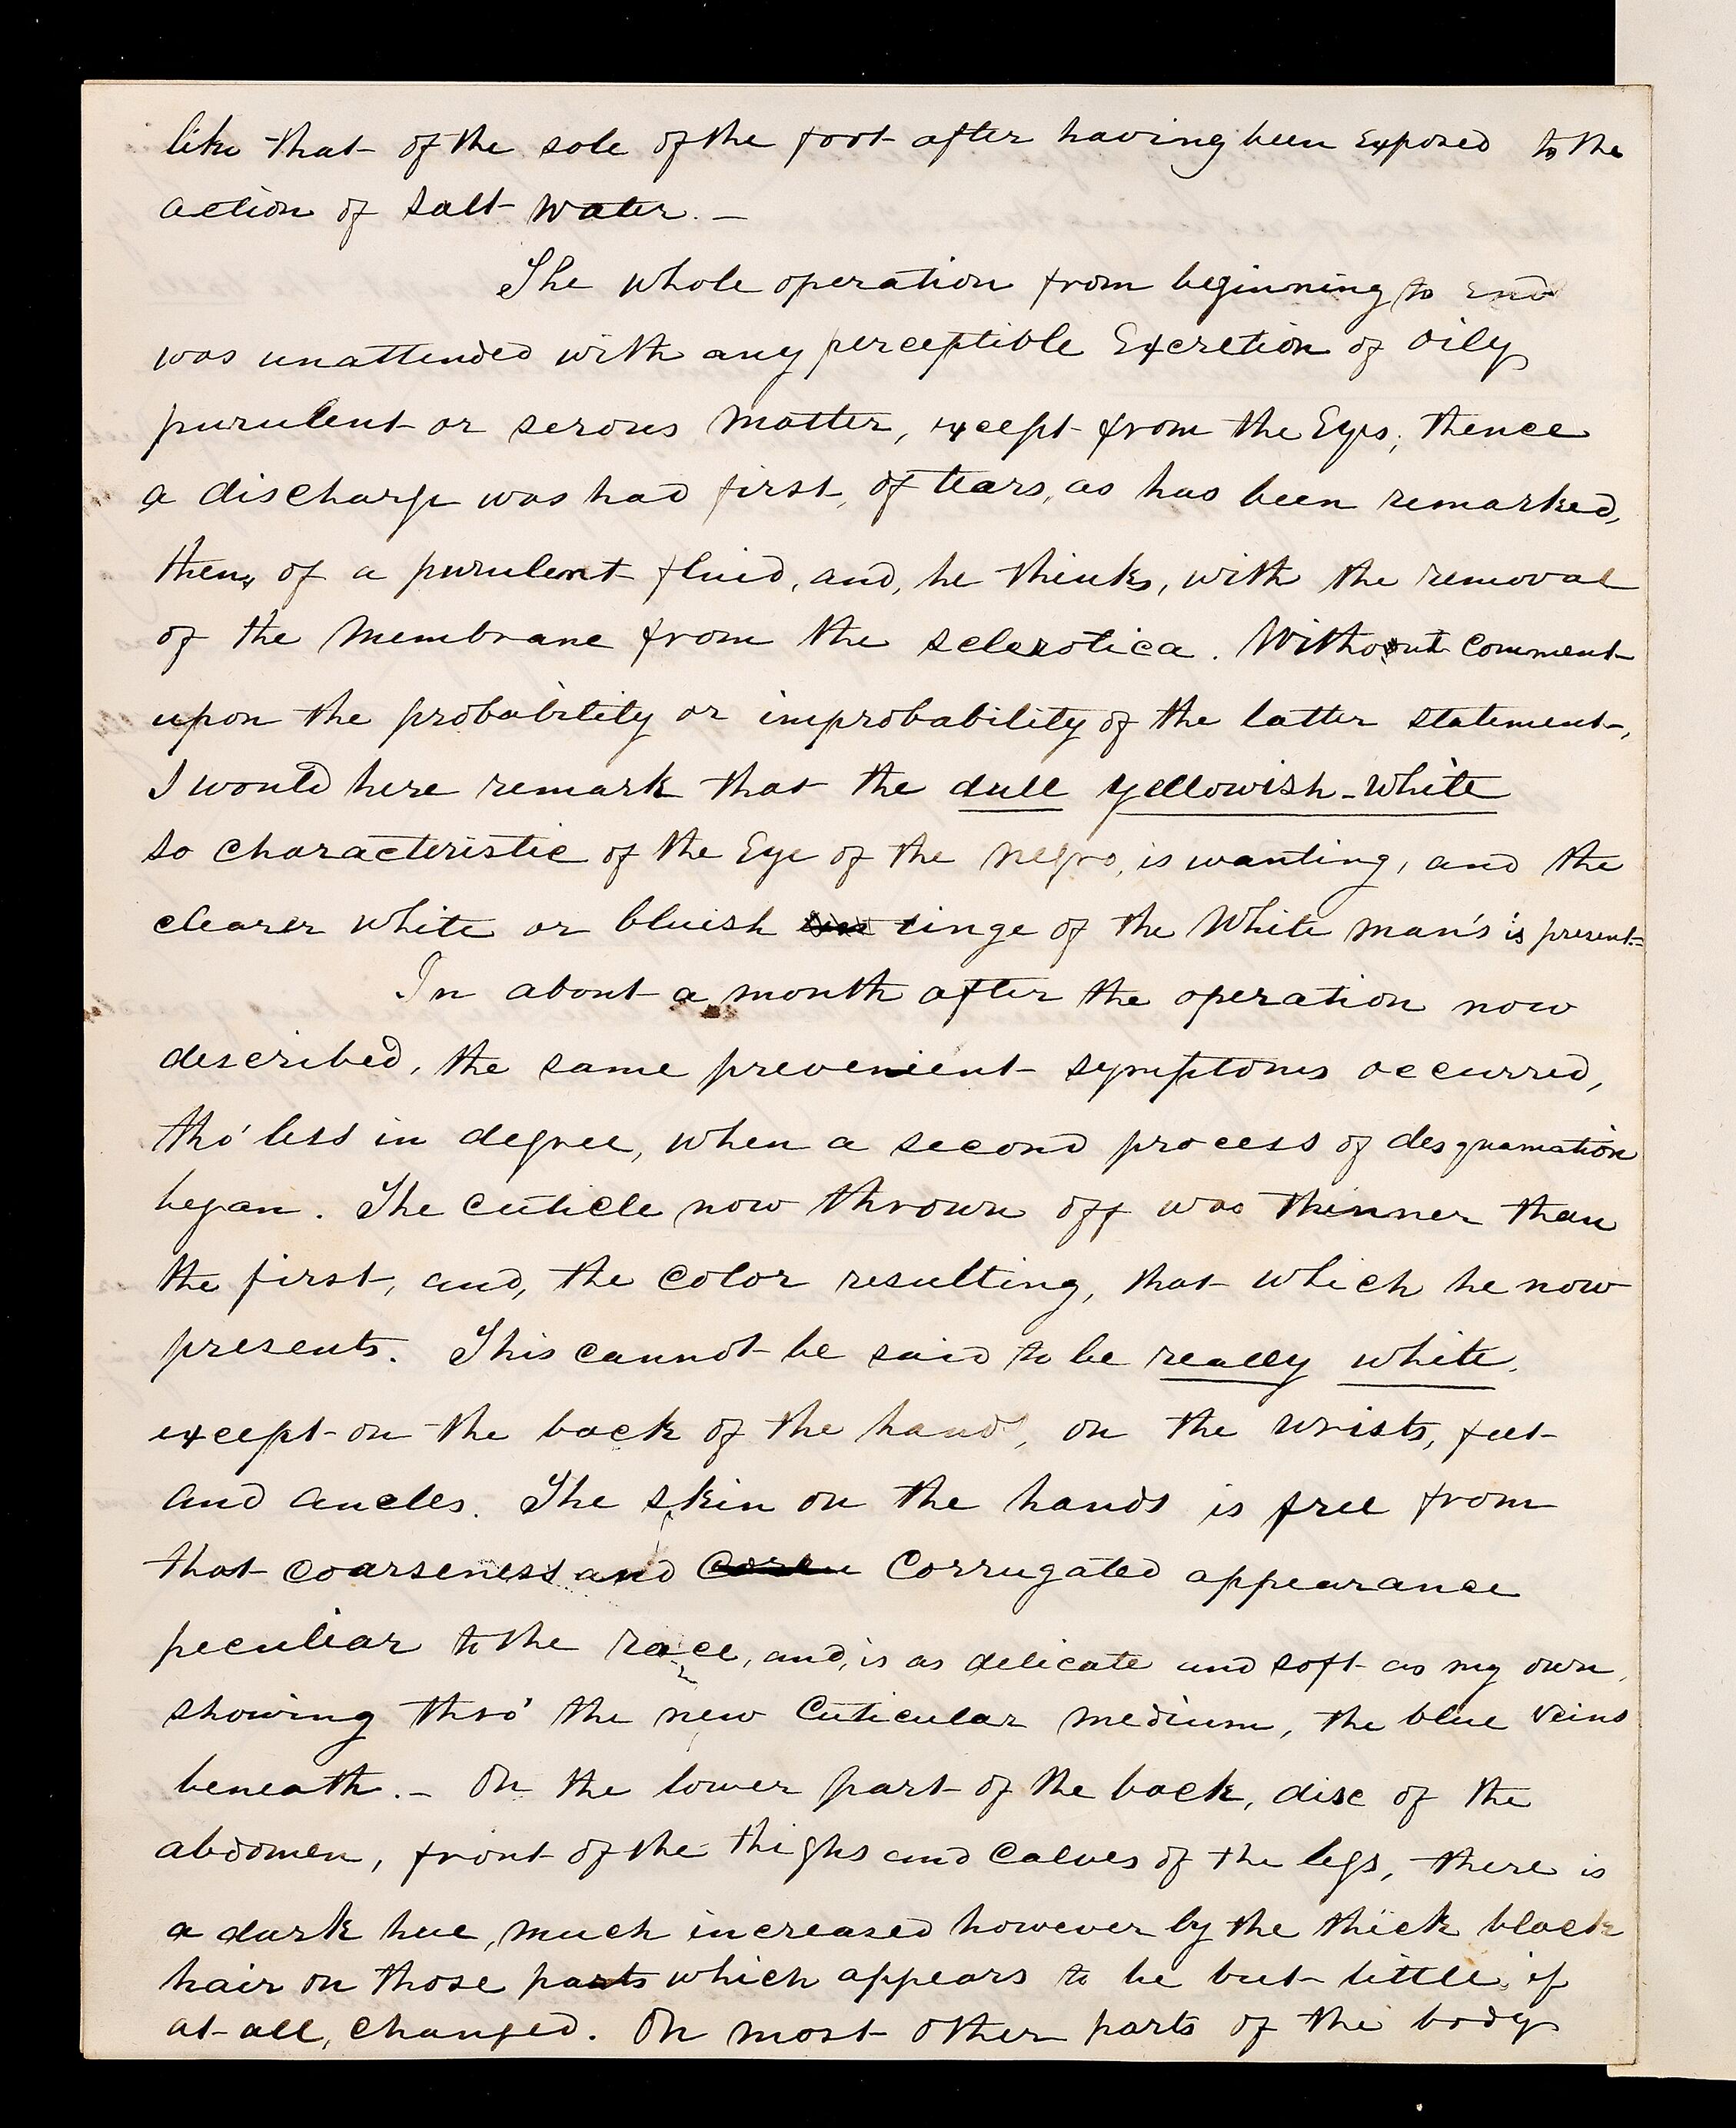 like that of the sole of the foot after having been exposed to the
action of salt water. —
The whole operation from beginning to end
was unattended with any perceptible Excretion of oily
purulent or serous matter, except from the Eyes; thence
a discharge was had first, of tears, as has been remarked,
then, of a purulent fluid, and, he thinks, with the removal
of the membrane from the sclerotica. Without comment
upon the probability or improbability of the latter statement,
I would here remark that the dull yellowish-white
so characteristic of the Eye of the negro, is wanting, and the
clearer white or bluish tinge of the White man's is present.
In about a month after the operation now
described, the same prevenient symptoms occurred,
tho' less in degree, when a second process of desquamation
began. The cuticle now thrown off was thinner than
the first, and, the color resulting, that which he now
presents. This cannot be said to be really white,
except on the back of the hand, on the wrists, feet
and ancles. The skin on the hands is free from
that coarseness and corrugated appearance
peculiar to the race, and, is as delicate and soft as my own,
showing thro' the new cuticular medium, the blue veins
beneath. — On the lower part of the back, disc of the
abdomen, front of the thighs and calves of the legs, there is
a dark hue, much increased however by the thick black
hair on those parts which appears to be but little, if
at all, changed. On most other parts of the body